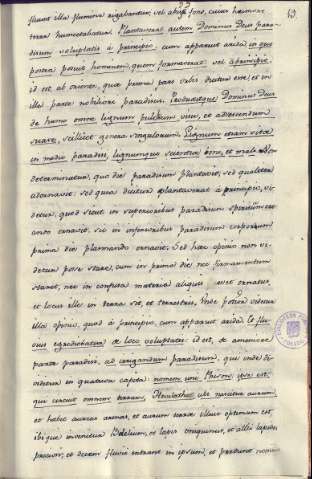 43
flumine illa flumina rigabantur, vel fons, cuius
terra humectabatur. Plantaverat autem Dominus Deus para-
disum voluptatis a principio, cum apparuit arida, in quo
postea posuit hominem, quem formaverat vel a principio,
id est, ab oriente, quae prima pars orbis dicitur esse, et in
illa parte nobiliore paradisus. Produxitque Dominus Deus
de humo omne lignum pulchrum visu, et ad vescendum
suave, scilicet genera singulorum. Lignum etiam vitae
in medio paradisi, lignumque scientiae boni, et mali. Non
determinatur, qua die paradisum plantavit, sed qualiter
adornavit. sed quia dicitur plantaverat a principio, vi-
detur, quod sicut in superioribus paradisum
ornavit, sic in inferioribus paradisum corporeum
prima die plasmando ornavit. Sed haec opinio non vi-
detur posse stare, cum in prima die nec firmamentum
esset, nec in confusa materia aliquis esset ornatus,
et locus ille in terra sit, et terrestris, Unde potior videtur
illa opinio, quod a principio, cum apparuit arida. Et flu-
vius egrediebatur de loco voluptatis: id est, de amoeniori
parte paradisi, ad irrigandum paradisum, qui inde di-
viditur in quatuor capita: nomen uni Phison ipse est,
qui circuit omnem terram, Hevilath: ubi nascitur aurum
et habet aureas arenas, et aurum terrae illius optimum est
ibique invenitur Bdelium, et lapis onychinus, et alii lapides
pretiosi, et decem fluvii intrant in ipsum, et perdunt nomen